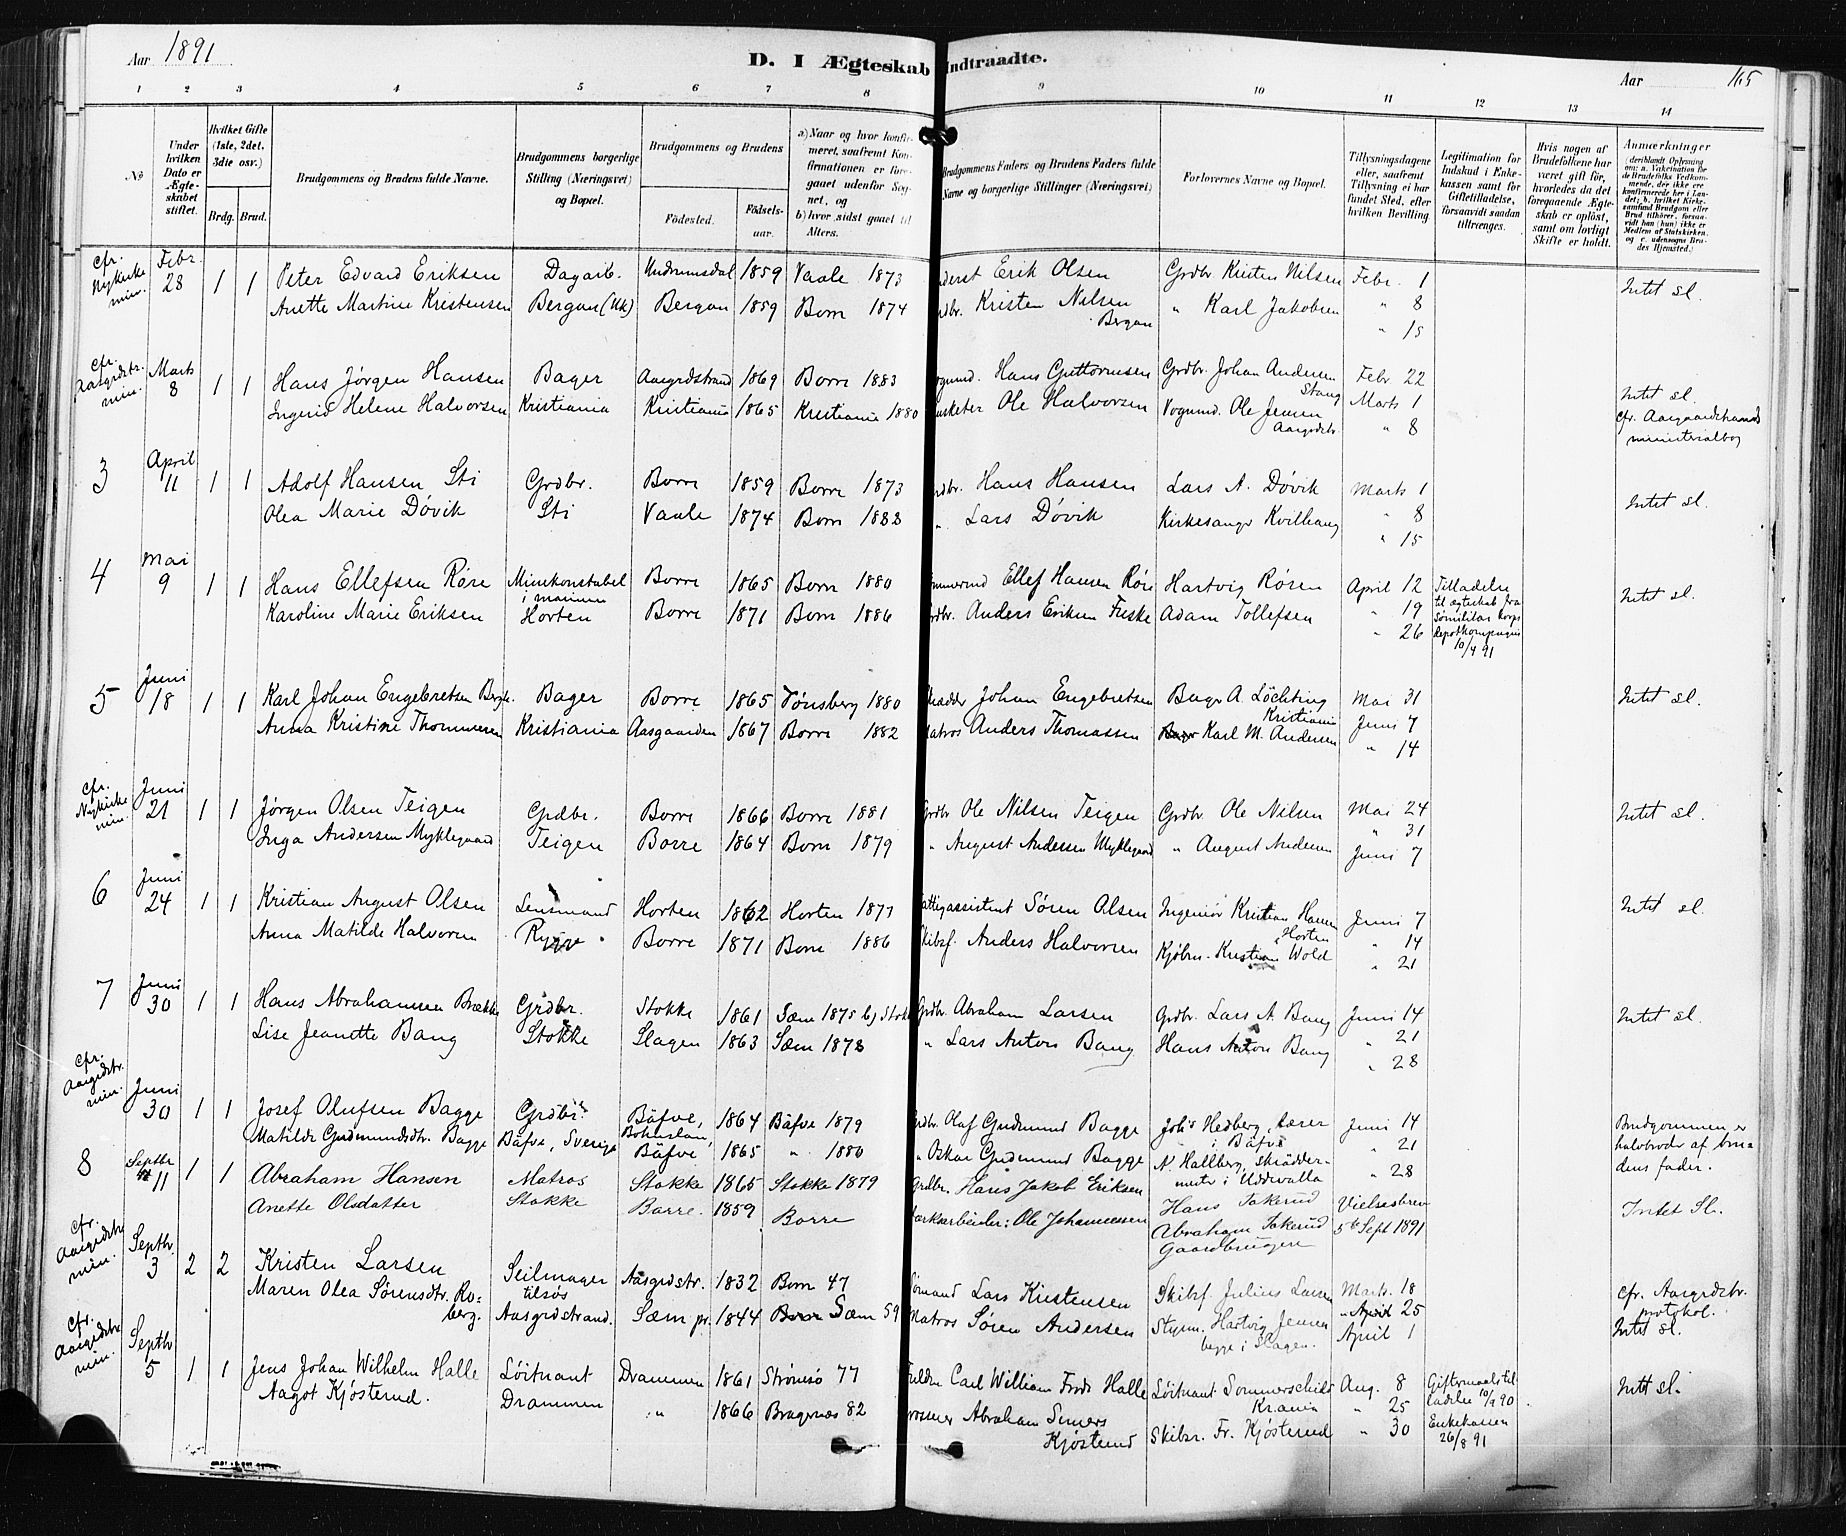 Aar 1891
D. I Ægteskab Indtraadte.
Aar 165
1 2 3 4 5 6 7 8 9 10 11 12 13 14
No
Under hvilken Dato er Ægteskabet stiftet.
Hvilket Gifte (1ste, 2det, 3die osv.)
Brdg. Brud.
Brudgommens og Brudens fulde Navne.
Brudgommens borgerlige Stilling (Næringsvei) og Bopæl.
Brudgommens og Brudens
Fødested. Fødselsaar.
a) Naar og hvor konfirmeret, saafremt Konfirmationen er foregaaet udenfor Sognet, og
b) hvor sidst gaaet til Alters.
Brudgommens Faders og Brudens Faders fulde Navne og borgerlige Stillinger (Næringsvei)
Forlovernes Navne og Bopæl.
Tillysningsdagene eller, saafremt Tillysning ei har fundet Sted, efter hvilken Bevilling.
Legitimation for Indskud i Enkekassen samt for Giftetilladelse, forsaavidt saadan tiltrænges.
Hvis nogen af Brudefolkene har været gift før, hvorledes da det foregaaende Ægteskab er opløst, samt om lovligt Skifte er holdt.
Anmerkninger
cfr. Nykirke min. Febr. 28 1 1 Peter Edvard Eriksen Dagarb. Undrumsdal 1859 Vaale 1873 Erik Olsen Grdbr. Kristen Nilsen Febr. 1 Intet sl.
Anette Martine Kristensen Bergan (Nk) Bergan 1859 Borre 1874 Kristen Nilsen Bergan " Karl Jakobsen " 8
" 15
cfr. Aasgrdstr. min. Marts 8 1 1 Hans Jørgen Hansen Bager Aasgrdstrand 1869 Borre 1883 Hans Guttormsen Grdbr. Johan Andersen Stang Febr 22 Intet sl.
Ingerid Helene Halvorsen Kristiania Kristiania 1865 Kristiania 1880 Ole Halvorsen Vognmd. Ole Jensen Aasgrdstr. Marts 1 cfr. Aasgaardstrands ministerialbog
" 8
3 April 11 1 1 Adolf Hansen Sti Grdbr. Borre 1859 Borre 1873 Hans Hansen Lars A. Døvik Marts 1 Intet sl.
Olea Marie Døvik Sti Vaale 1874 Borre 1888 " Lars Døvik Kirkesanger Kvilhaug " 8
" 15
4 Mai 9 1 1 Hans Ellefsen Røre Minekonstabel i marinen Borre 1865 Borre 1880 Ellef Hansen Røre Hartvig Røren April 12 Tilladelse til ægteskab fra Sømilitær Korps Depotkompagni 10/4 91 Intet sl.
Karoline Marie Eriksen Horten Borre 1871 Borre 1886 Anders Eriksen Fuske Adam Tollefsen " 19
" 26
5 Juni 18 1 1 Karl Johan Engebretsen Bager Borre 1865 Tønsberg 1880 Johan Engebretsen Bager A. Løchting Kristiania Mai 31 Intet sl.
Anna Kristine Thomassen Kristiania Aasgaarden 1867 Borre 1882 Matros Anders Thomassen Karl M. Andersen Juni 7
" 14
cfr. Nykirke min. Juni 21 1 1 Jørgen Olsen Teigen Grdbr. Borre 1866 Borre 1881 Grdbr Ole Nilsen Teigen Grdbr. Ole Nilsen Mai 24 Intet sl.
Inga Andersen Myklegaard Teigen Borre 1864 Borre 1879 " August Andersen Myklegaard " August Andersen " 31
Juni 7
6 Juni 24 1 1 Kristian August Olsen Lensmand Horten 1862 Horten 1877 Fattigassistent Søren Olsen Ingeniør Kristian Hansen Horten Juni 7 Intet sl.
Anna Matilde Halvorsen Rygge Borre 1871 Borre 1886 Skibsf. Anders Halvorsen Kjøbm. Kristian Wold " 14
" 21
7 Juni 30 1 1 Hans Abrahamsen Brække Grdbr. Stokke 1861 Sæm 1875 b) Stokke Grdbr. Abraham Larsen Grdbr. Lars A. Bang Juni 14 Intet sl.
Lise Jeanette Bang Stokke Slagen 1863 Sæm 1878 " Lars Anton Bang Hans Anton Bang " 21
" 28
cfr. Aasgrdstr. min. Juni 30 1 1 Josef Olufsen Bagge Grdbr. Bäfve, Bohuslän, 1864 Bäfve 1879 Grdbr. Olaf Gudmund Bagge Johs Hedberg, lærer i Bäfve Juni 14 Brudgommen er halvbroder af brudens fader.
Matilde Gudmundsdtr. Bagge Bäfve, Sverige Bäfve 1865 " 1880 " Oskar Gudmund Bagge N. Hallberg, skräddermester i Uddevalla " 21
" 28
8 Septbr 11 1 1 Abraham Hansen Matros Stokke 1865 Stokke 1879 Grdbr. Hans Jakob Eriksen Hans Jakerud Vielsesbrev Intet Sl.
Anette Olsdatter Stokke Borre 1859 Borre Ole Johannessen Abraham Jakerud Gaardbrugere 5te Sept 1891
cfr. Aasgrdstr. min. Septbr. 3 2 2 Kristen Larsen Seilmager tilsøs Aasgrdstr. 1832 Borre 47 Lars Kristensen Skibsf. Julius Larsen Marts 18 cfr. Aasgrdstr. protokol.
Maren Olea Sørensdtr. Roberg. Aasgrdstrand. Sæm pr. 1844 Sæm 59 Matros Søren Andersen Styrm. Hartvig Jensen begge i Slagen. " 25 Intet sl.
April 1
cfr. Aasgrdstr. min. Septbr 5 1 1 Jens Johan Wilhelm Halle Løitnant Drammen 1861 Strømsø 77 Carl William Fredr Halle Løitnant Sommerschild Kr.ania Aug. 8 Giftermaalstilladelse 10/9 90 Intet sl.
Nagot Kjøsterud. Drammen " 1866 Bragernæs 82 Abraham Simers Kjøsterud Skibsr. Fr. Kjøsterud " 25 Enkekassen 26/8 91
" 30